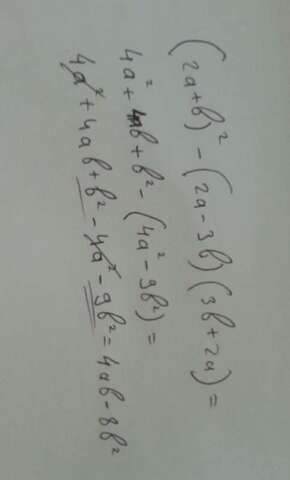 (2a+b)² - (2a-3b)(3b+2a) =
4a² + 4ab + b² - (4a² - 9b²) =
4a² + 4ab + b² - 4a² - 9b² = 4ab - 8b²